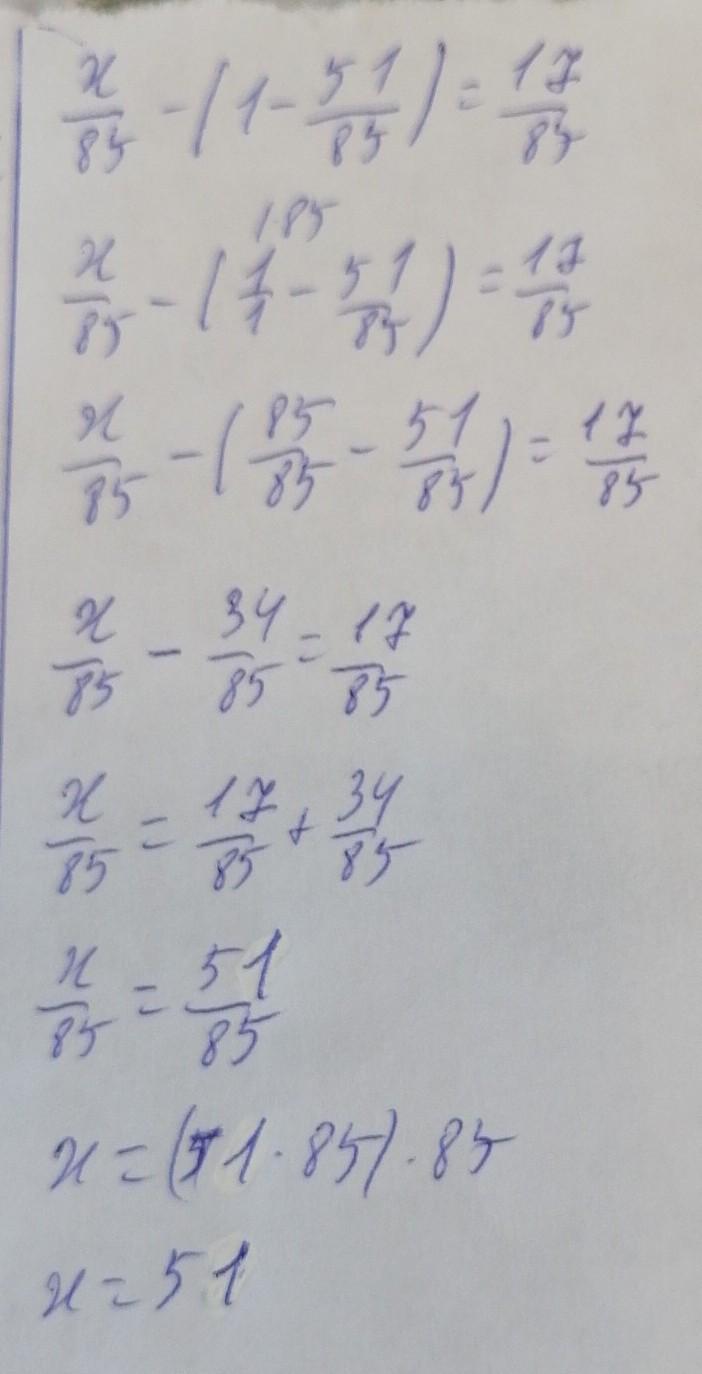 x/85 - (1 - 51/85) = 17/85
1·85
x/85 - (1/1 - 51/85) = 17/85
x/85 - (85/85 - 51/85) = 17/85
x/85 - 34/85 = 17/85
x/85 = 17/85 + 34/85
x/85 = 51/85
x = (51 · 85) · 85
x = 51